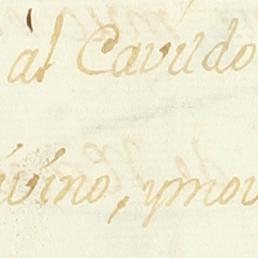 al Cavildo
ivino, ymov